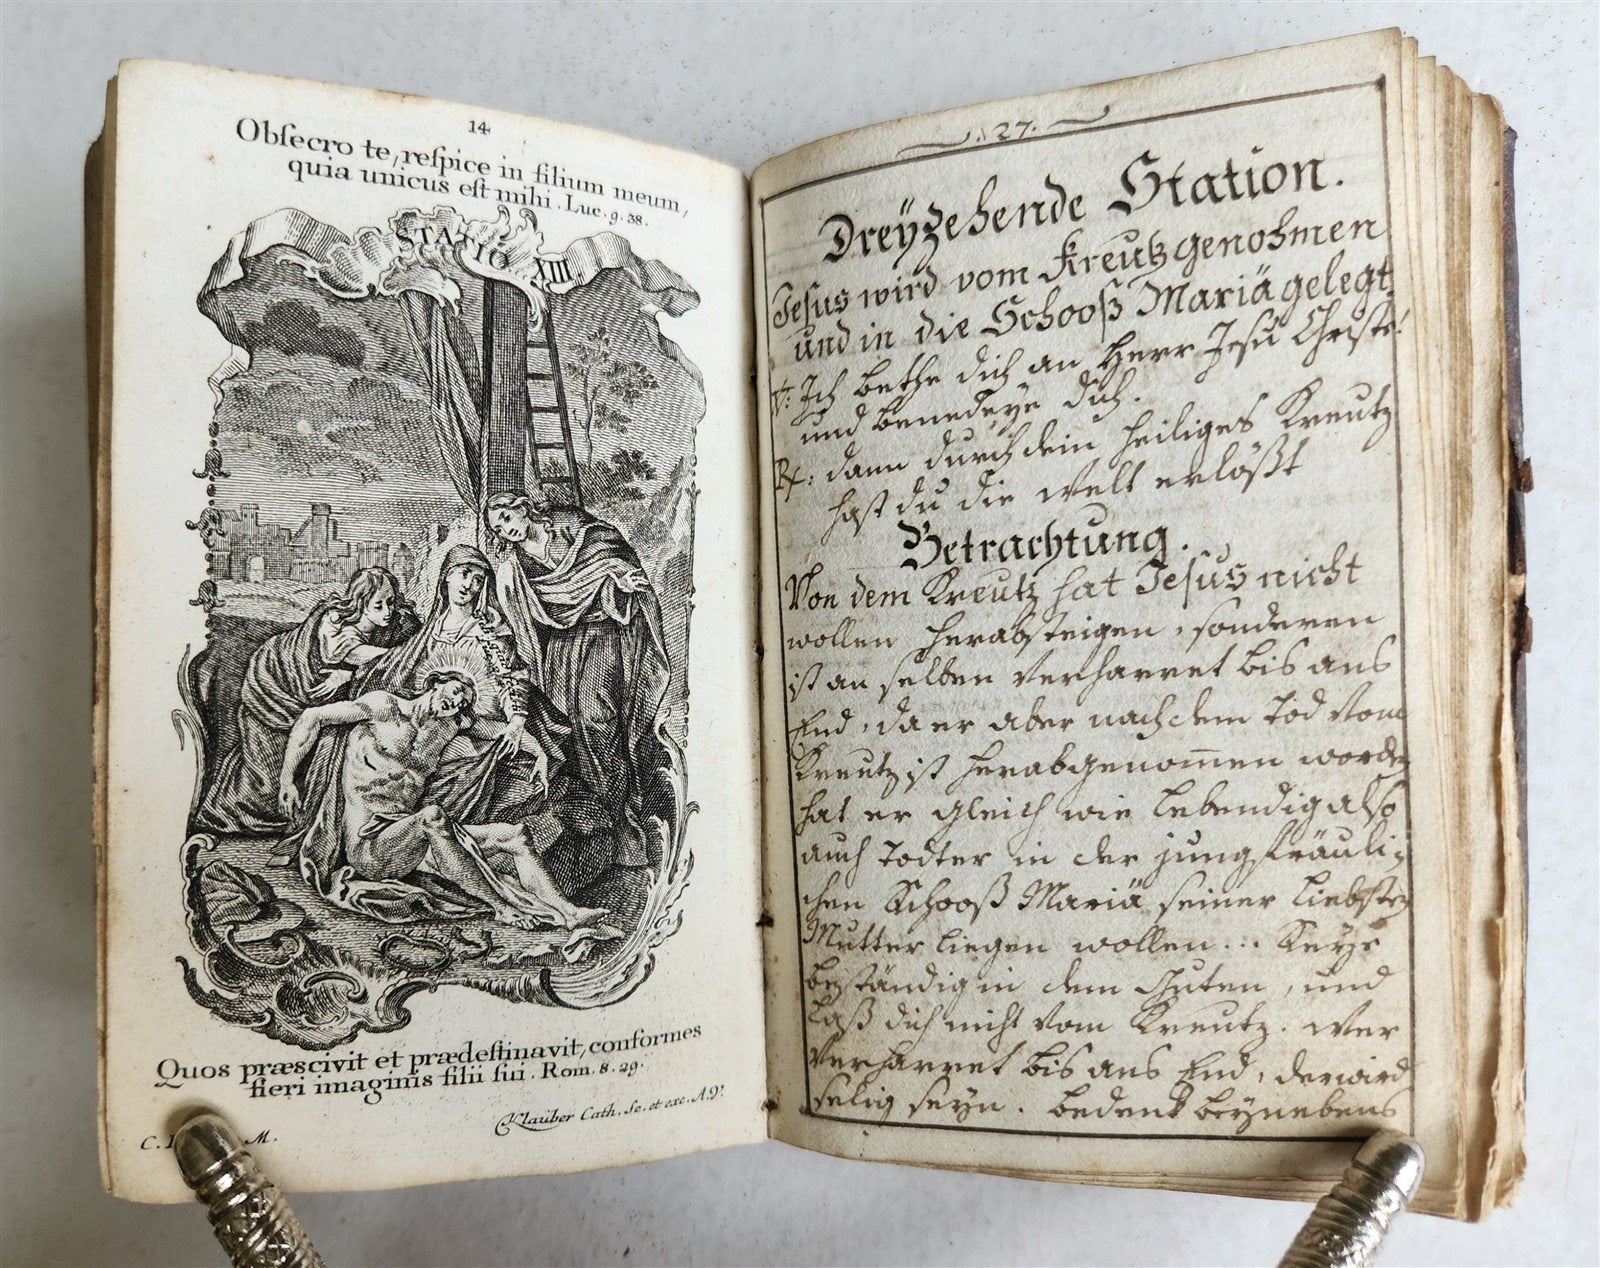 14
Obſecro te, reſpice in filium meum,
quia unicus eſt mihi. Luc. 9. 38.
STATIO XIII.
Quos præscivit et prædeſtinavit, conformes
fieri imaginis filii ſui. Rom. 8. 29.
Klauber Cath. Sc. et exc. A.V.
C. M.
27.
Dreÿzehende Station.
Jesus wird vom Kreutz genohmen
und in die Schooß Mariä gelegt.
V: Ich bethe dich an Herr Jesu Christe!
und benedeye dich.
R: dann durch dein heiliges Kreutz
hast du die Welt erlößt
Betrachtung.
Von dem Kreutz hat Jesus nicht
wollen herabsteigen, sonderen
ist an selben verharret bis ans
End, da er aber nach dem Tod vom
Kreutz ist herabgenom̄en worden
hat er gleich wie lebendig also
auch todter in der jungfräuli-
chen Schooß Mariä seiner liebsten
Mutter liegen wollen... Keye
beständig in dem Guten, und
laß dich nicht vom Kreutz. Wer
verharret bis ans End, der wird
selig seyn. bedenk beynebens